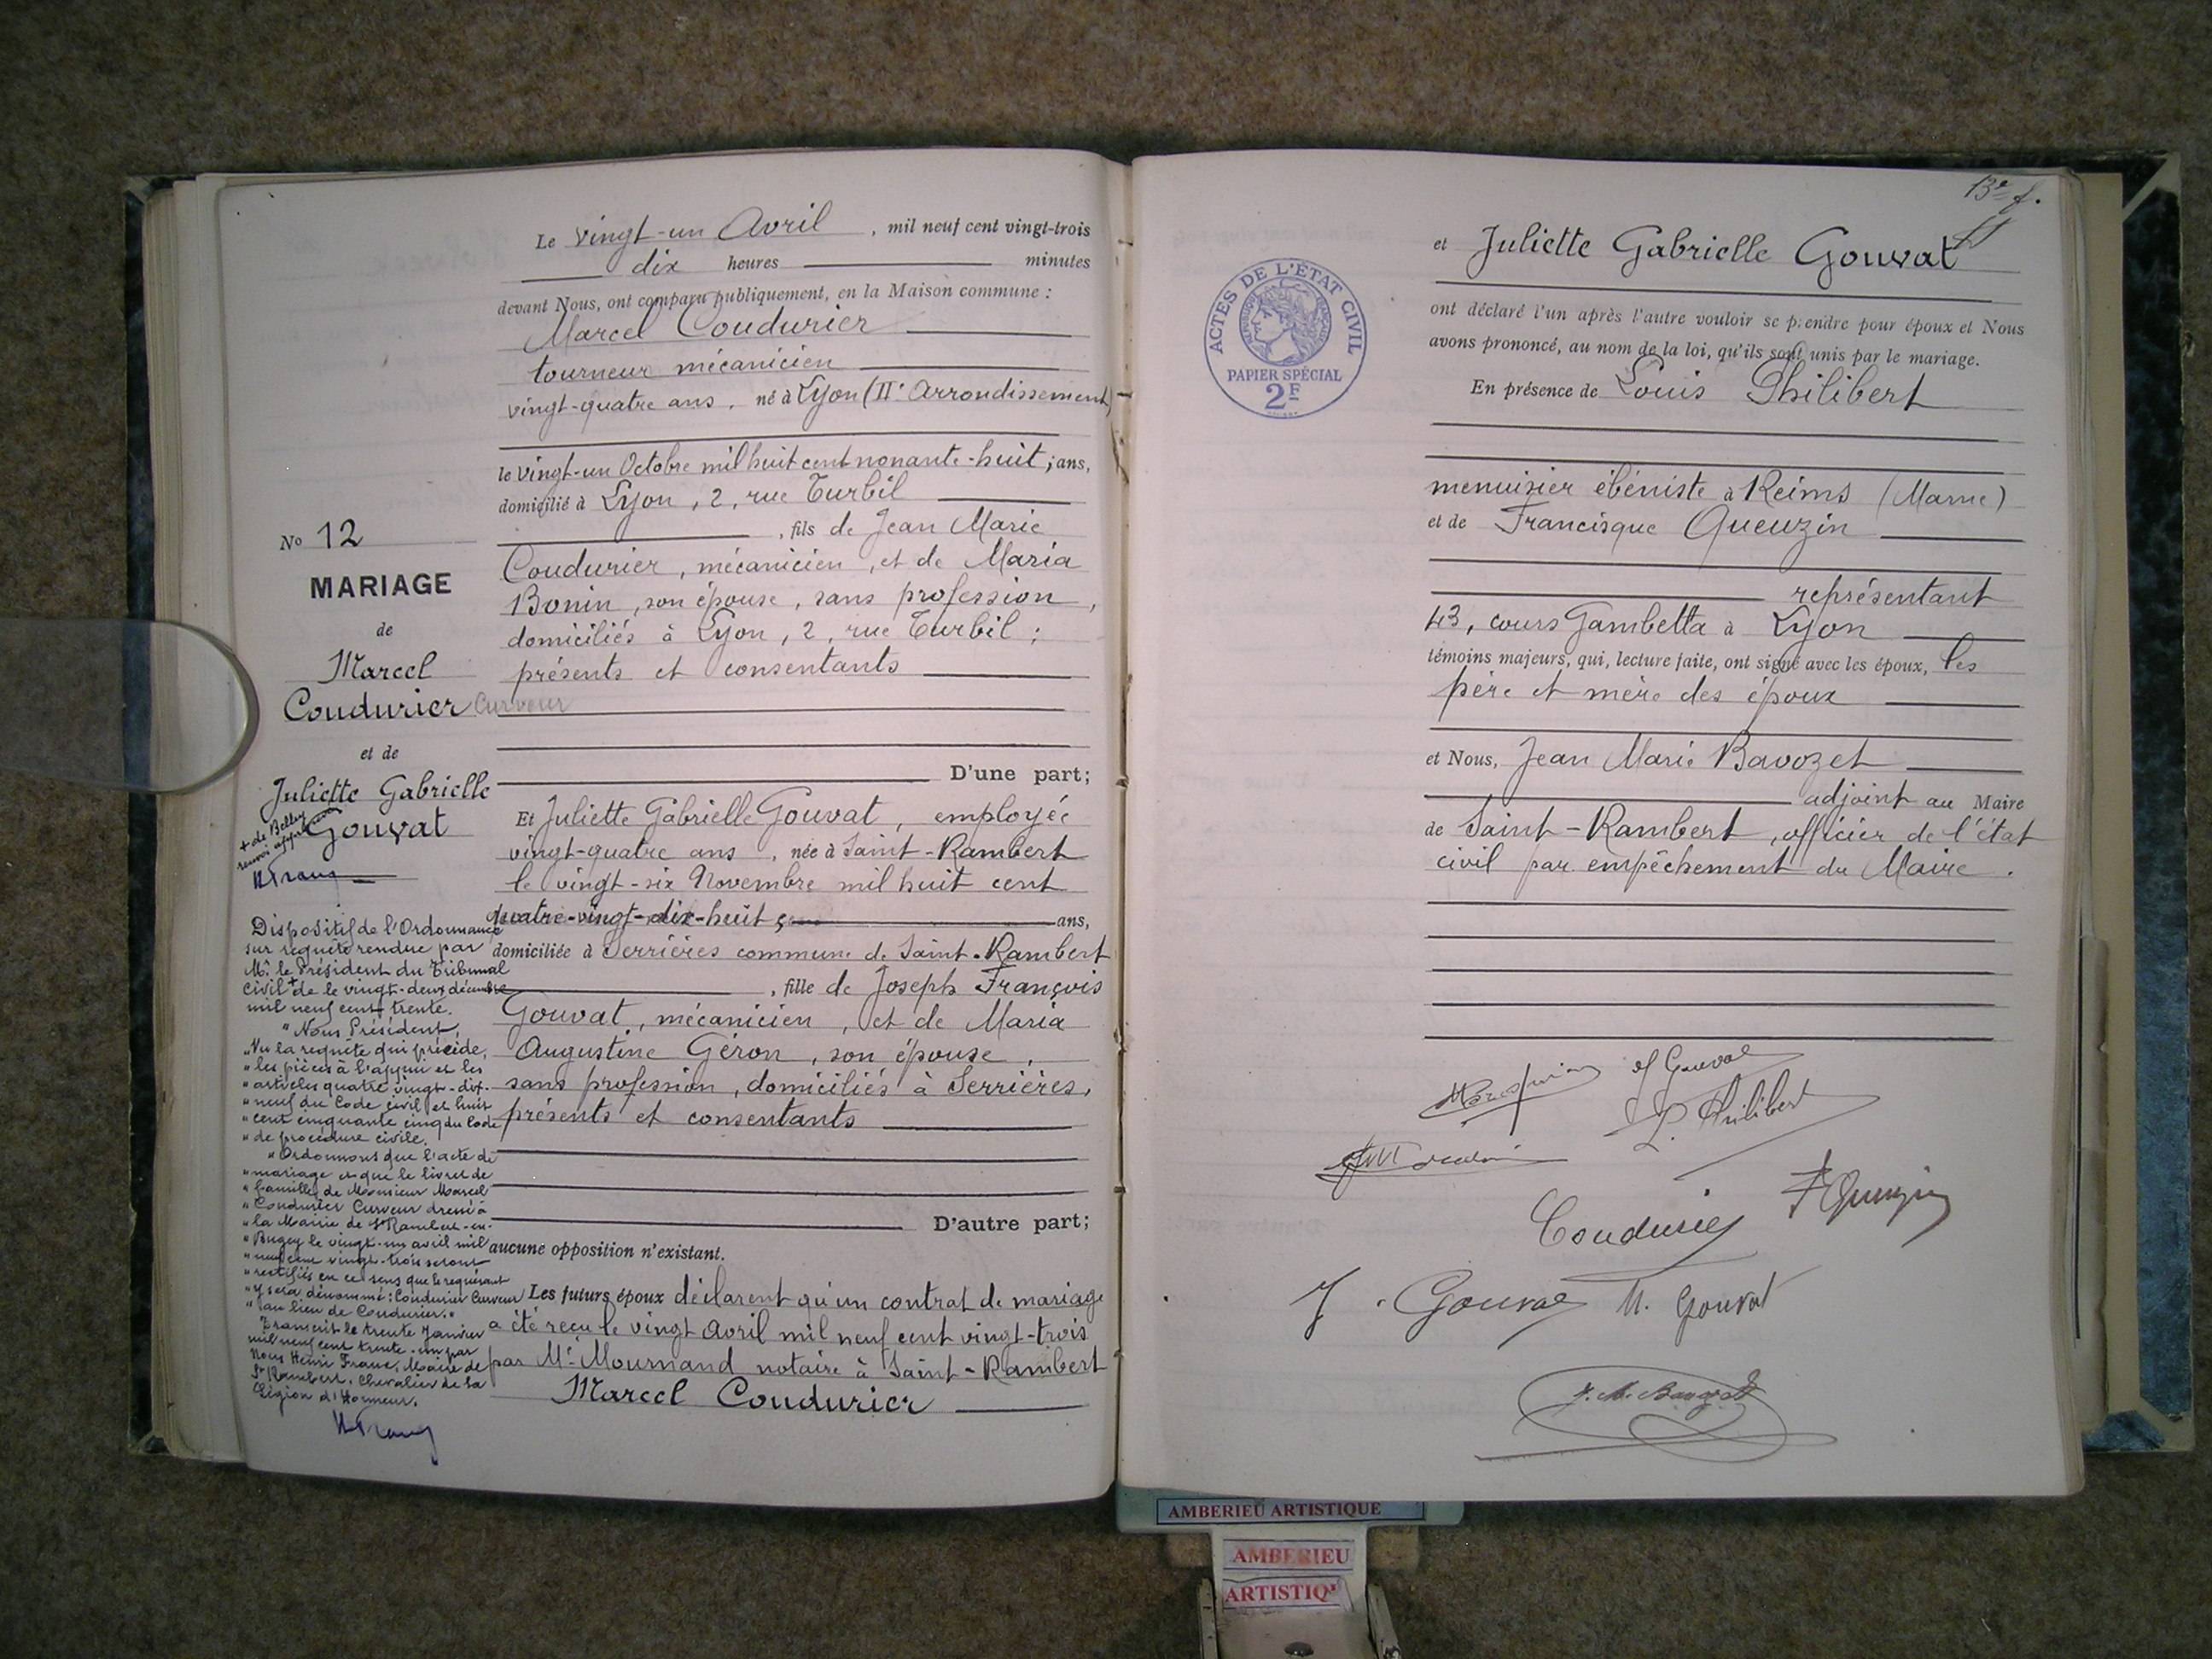 Le vingt-un Avril, mil neuf cent vingt-trois
dix heures minutes
devant Nous, ont comparu publiquement, en la Maison commune :
Marcel Coudurier
tourneur mécanicien
vingt-quatre ans, né à Lyon (IIe Arrondissement)
le vingt-un Octobre mil huit cent nonante-huit ; ans,
domicilié à Lyon, 2, rue Turbil
, fils de Jean Marie
Coudurier, mécanicien, et de Maria
Bonin, son épouse, sans profession,
domiciliés à Lyon, 2, rue Turbil ;
présents et consentants
D'une part;
Et Juliette Gabrielle Gouvat, employée
vingt-quatre ans, née à Saint-Rambert
le vingt-six Novembre mil huit cent
quatre-vingt-dix-huit ; ans,
domiciliée à Serrières commune de Saint-Rambert
, fille de Joseph François
Gouvat, mécanicien, et de Maria
Augustine Géron, son épouse,
sans profession, domiciliés à Serrières,
présents et consentants
D'autre part;
aucune opposition n'existant.
Les futurs époux déclarent qu'un contrat de mariage
a été reçu le vingt Avril mil neuf cent vingt-trois
par Me Mournand notaire à Saint-Rambert
Marcel Coudurier
No 12
MARIAGE
de
Marcel
Coudurier Curveur
et de
Juliette Gabrielle
Gouvat
+ de Belley
renvoi approuvé
H Franc
Dispositif de l'Ordonnance
sur requête rendue par
Mr. le Président du Tribunal
civil + de le vingt-deux décembre
mil neuf cent trente.
" Nous Président,
" Vu la requête qui précède,
" les pièces à l'appui et les
" articles quatre vingt-dix-
" neuf du Code civil et huit
" cent cinquante cinq du Code
" de procédure civile.
" Ordonnons que l'acte de
" mariage et que le livret de
" famille de Monsieur Marcel
" Coudurier Curveur dressé à
" la Mairie de St Rambert-en-
" Bugey le vingt-un avril mil
" neuf cent vingt-trois seront
" rectifiés en ce sens que le requérant
" y sera dénommé : Coudurier Curveur
" au lieu de Coudurier. "
Transcrit le trente Janvier
mil neuf cent trente-un par
Nous Henri Franc, Maire de
St Rambert, Chevalier de la
Légion d'Honneur.
H Franc
13e f.
et Juliette Gabrielle Gouvat
ont déclaré l'un après l'autre vouloir se prendre pour époux et Nous
avons prononcé, au nom de la loi, qu'ils sont unis par le mariage.
En présence de Louis Philibert
menuisier ébéniste à Reims (Marne)
et de Francisque Queuzin
représentant
43, cours Gambetta à Lyon
témoins majeurs, qui, lecture faite, ont signé avec les époux, les
père et mère des époux
et Nous, Jean Marie Bavozet
adjoint au Maire
de Saint-Rambert, officier de l'état
civil par empêchement du Maire.
J Gouvat
L. Philibert
Coudurier
F Queuzin
J. Gouvat M. Gouvat
J. M. Bavozet
ACTES DE L'ÉTAT CIVIL
RÉPUBLIQUE FRANÇAISE
PAPIER SPÉCIAL
2F
AMBERIEU ARTISTIQUE
AMBERIEU
ARTISTIQ